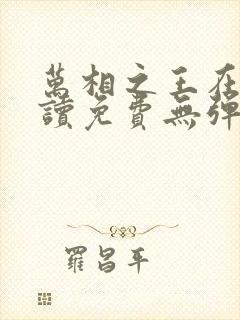 萬相之王在
讀免費無彈
羅昌平